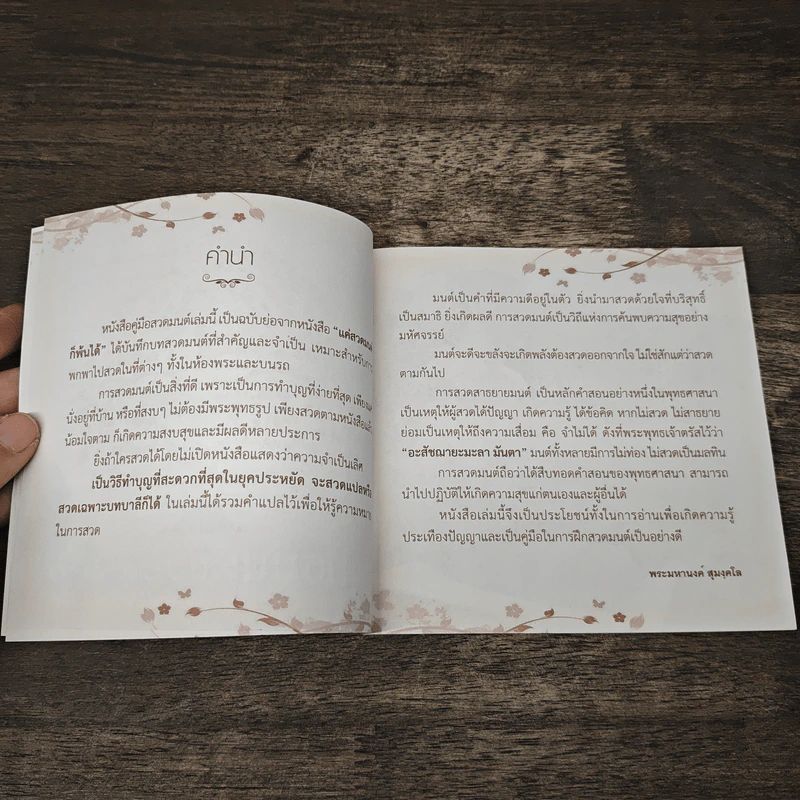 คำนำ
หนังสือคู่มือสวดมนต์เล่มนี้ เป็นฉบับย่อจากหนังสือ "แค่สวดมนต์
ก็พ้นได้" ได้บันทึกบทสวดมนต์ที่สำคัญและจำเป็น เหมาะสำหรับการ
พกพาไปสวดในที่ต่างๆ ทั้งในห้องพระและบนรถ
การสวดมนต์เป็นสิ่งที่ดี เพราะเป็นการทำบุญที่ง่ายที่สุด เพียง
นั่งอยู่ที่บ้าน หรือที่สงบๆ ไม่ต้องมีพระพุทธรูป เพียงสวดตามหนังสือแล้ว
น้อมใจตาม ก็เกิดความสงบสุขและมีผลดีหลายประการ
ยิ่งถ้าใครสวดได้โดยไม่เปิดหนังสือแสดงว่าความจำเป็นเลิศ
เป็นวิธีทำบุญที่สะดวกที่สุดในยุคประหยัด จะสวดแปลหรือ
สวดเฉพาะบทบาลีก็ได้ ในเล่มนี้ได้รวมคำแปลไว้เพื่อให้รู้ความหมาย
ในการสวด
มนต์เป็นคำที่มีความดีอยู่ในตัว ยิ่งนำมาสวดด้วยใจที่บริสุทธิ์
เป็นสมาธิ ยิ่งเกิดผลดี การสวดมนต์เป็นวิถีแห่งการค้นพบความสุขอย่าง
มหัศจรรย์
มนต์จะดีจะขลังจะเกิดพลังต้องสวดออกจากใจ ไม่ใช่สักแต่ว่าสวด
ตามกันไป
การสวดสาธยายมนต์ เป็นหลักคำสอนอย่างหนึ่งในพุทธศาสนา
เป็นเหตุให้ผู้สวดได้ปัญญา เกิดความรู้ ได้ข้อคิด หากไม่สวด ไม่สาธยาย
ย่อมเป็นเหตุให้ถึงความเสื่อม คือ จำไม่ได้ ดังที่พระพุทธเจ้าตรัสไว้ว่า
"อะสัชฌายะมะลา มันตา" มนต์ทั้งหลายมีการไม่ท่อง ไม่สวดเป็นมลทิน
การสวดมนต์ถือว่าได้สืบทอดคำสอนของพุทธศาสนา สามารถ
นำไปปฏิบัติให้เกิดความสุขแก่ตนเองและผู้อื่นได้
หนังสือเล่มนี้จึงเป็นประโยชน์ทั้งในการอ่านเพื่อเกิดความรู้
ประเทืองปัญญาและเป็นคู่มือในการฝึกสวดมนต์เป็นอย่างดี
พระมหานงค์ สุมงฺคโล